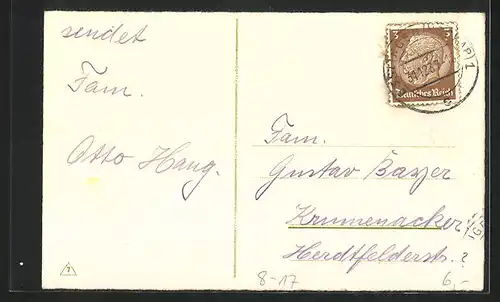 sendet
Fam.
Otto Haug.
3
Deutsches Reich
Fam.
Gustav Bayer
Krummenacker
Herdtfelderstr. 2
8-17
6,-
1